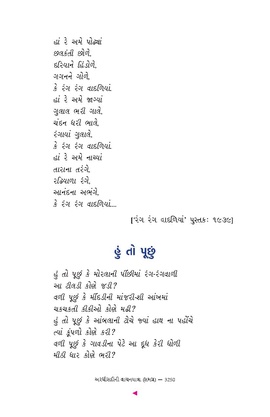 હાં રે અમે પોઢ્યાં
છલકંતી છોળે,
દરિયાને હિંડોળે,
ગગનને ગોળે,
કે રંગ રંગ વાદળિયાં.
હાં રે અમે જાગ્યાં
ગુલાલ ભરી ગાલે,
ચંદન ધરી ભાલે,
રંગાયાં ગુલાલે,
કે રંગ રંગ વાદળિયાં.
હાં રે અમે નાચ્યાં
તારાના તરંગે,
રઢિયાળા રંગે,
આનંદના અભંગે,
કે રંગ રંગ વાદળિયાં...
['રંગ રંગ વાદળિયાં' પુસ્તક: ૧૯૩૯]
હું તો પૂછું
હું તો પૂછું કે મોરલાની પીંછીમાં રંગ-રંગવાળી
આ ટીલડી કોણે જડી?
વળી પૂછું કે મીંદડીની માંજરી-શી આંખમાં
ચકચકતી કીકીઓ કોણે મઢી?
હું તો પૂછું કે આંબલાની ટોચે જ્યાં હાથ ના પહોંચે
ત્યાં કૂંપળો કોણે કરી?
વળી પૂછું કે ગાવડીના પેટે આ દૂધ કેરી ધોળી
મીઠી ધાર કોણે ભરી?